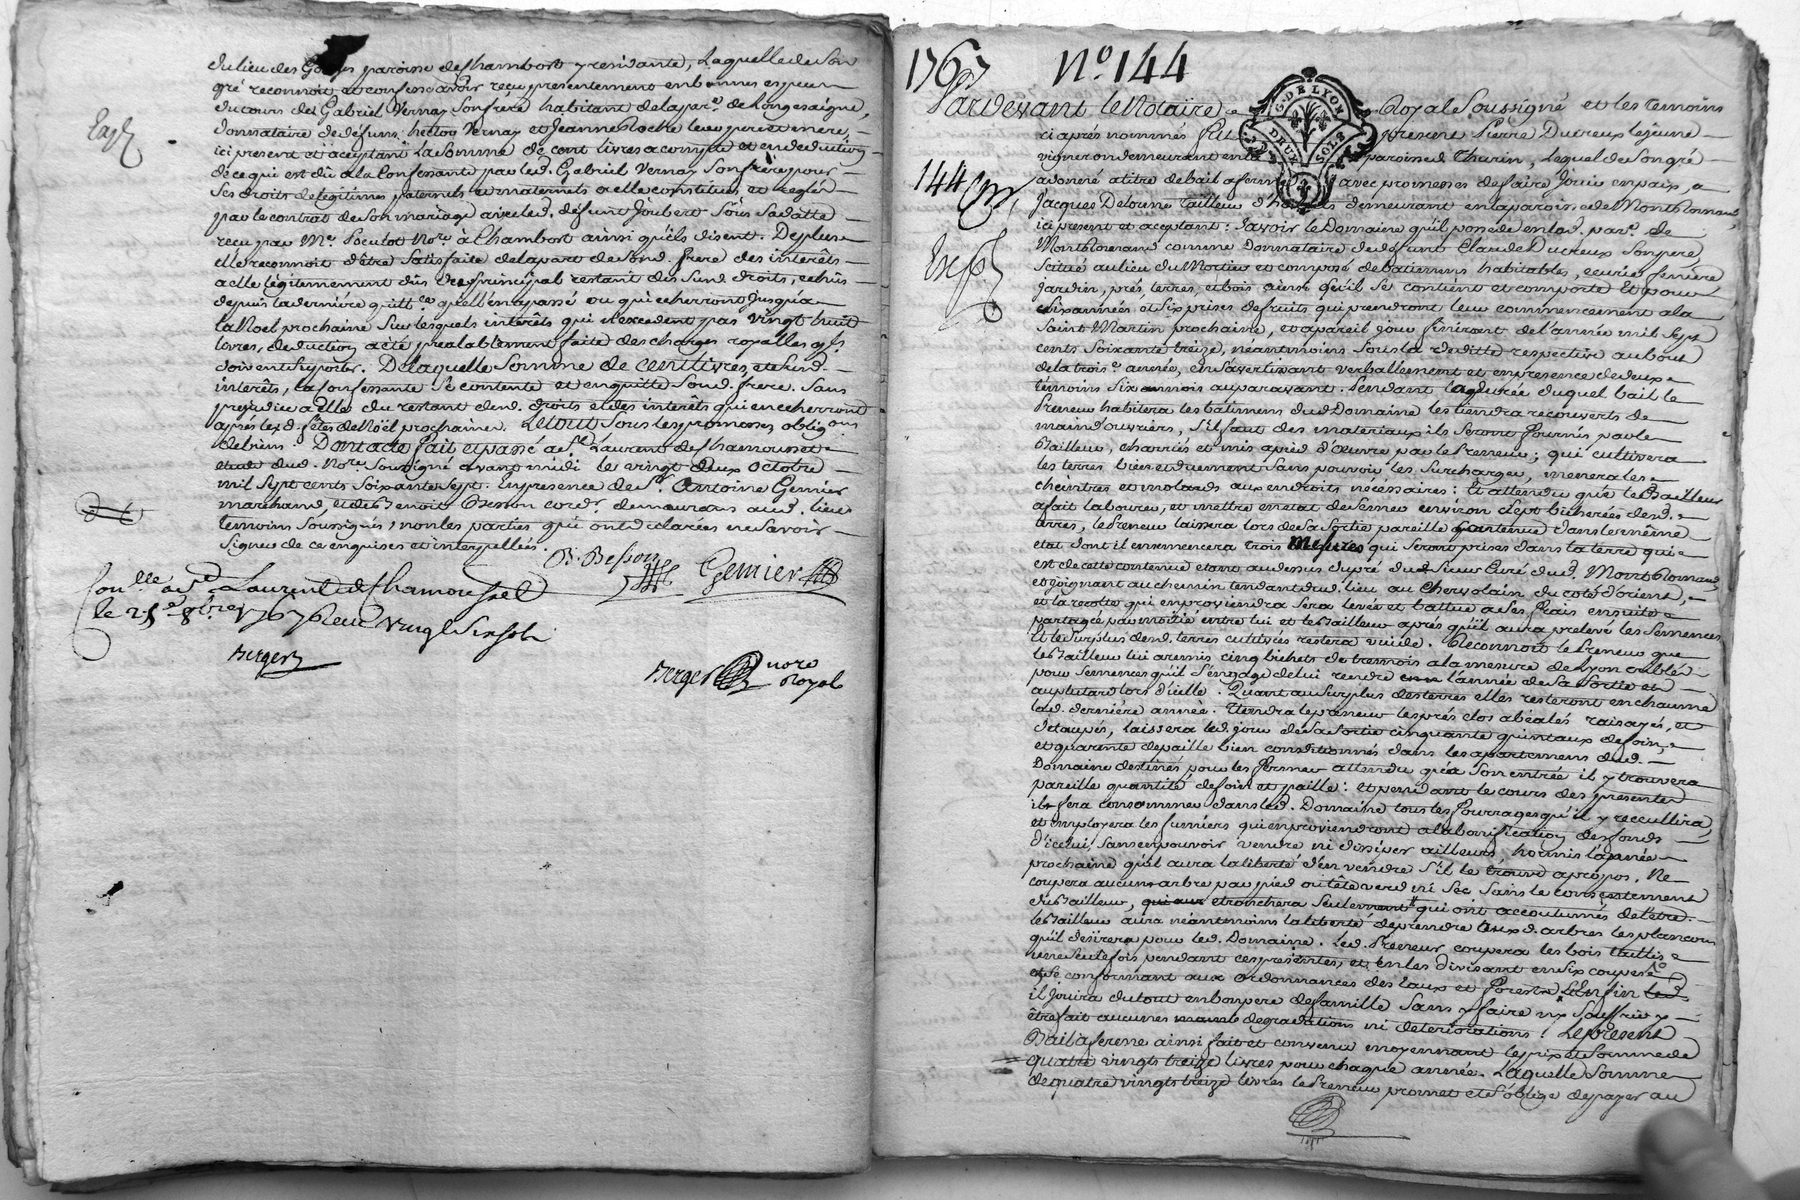 du lieu des Gouttes paroisse de Chambost y residante, Laquelle de Son
gré reconnoit et confesse avoir reçu presentement en bonnes especes
du cours de Gabriel Vernay Son frére habitant de la par.e de Longesaigne,
Expé
donnataire de defunts hector Vernay et Jeanne Roche leurs pere et mere,
ici present et acceptant La Somme de cent livres a compte et en deduction
de ce qui est dû a la Confessante par led. Gabriel Vernay Son frére pour
Ses droits de legitimes paternels et maternels a elle constitués et reglés
par le contrat de Son mariage avec led. défunt Joubert Sous Sa datte
recu par Me. Nore à Chambost ainsi qu'ils disent. De plus
elle reconnoit d'être Satisfaite de la part de Sond. frere des interêts
a elle légitimement dûs du principal restant des Susd. droits, echûs
depuis la derniére quitt.ce qu'elle en a passé ou qui echerront jusqu'a
la Noel prochaine Sur lesquels interêts qui n'excedent pas vingt huit
livres, deduction a été prealablement faite des charges royalles qu'ils
doivent Suporter. De laquelle Somme de cent livres, et desd.
interêts, la Confessante Se contente et en quitte Sond. frere. Sans
prejudice a elle du restant desd. droits et des interêts qui en echerront
après les d. fêtes de Noël prochaine. Le tout Sous les promesses, oblig.ons
de biens. Dont acte fait et passé a St. Laurent de Chamousset
etude dud. Nore. Soussigné avant midi le vingt deux Octobre
mil Sept cents Soixante Sept. En presence de Sr. Antoine Gemier
marchand, et de Benoit Besson cord.r demeurans aud. lieu
temoins Soussignés, non les parties qui ont declarées ne Savoir
Signer de ce enquises et interpellées.
B. Besson Gemier
Con.lle a St Laurent de Chamousset
le 25e 8bre 1767 Reçu vingt Six Sols
Berger
Berger nore Royal
1767 No. 144
G. DE LYON
DEUX SOLS
Pardevant le Notaire Royal Soussigné et les temoins
ci aprés nommés fut present Pierre Ducreux le jeune
vigneron demeurant en la paroisse d Thurin, Lequel de Son gré
144
a donné a titre de bail a ferme avec promesses de faire Jouir en paix, a
Jacques Delorme tailleur d'habits demeurant en la paroisse de Montromand,
ici present et aceptant: Savoir le Domaine qu'il possede en lad. par.e de
Expé
Montromand comme Donnataire de défunt Claude Ducreux Son pere,
Scitué au lieu du Mortier et composé de batimens habitables, ecurie, feniére
Jardin, prés, terres, et bois ainsi qu'il Se contient et comporte Et pour
Six années et Six prises de fruits qui prendront leur commencement a la
Saint Martin prochaine, et a pareil jour finiront de l'année mil Sept
cents Soixante treize, néantmoins Sous la deditte respective au bout
de la trois.e année, en S'avertissant verballement et en presence de deux
témoins Six mois auparavant. Pendant la durée duquel bail le
Preneur habitera les bâtimens dud. Domaine les tiendra recouverts de
main d'ouvriers, S'il faut des materiaux ils Seront fournis par le
Bailleur, charriés et mis a pied d'œuvre par le Preneur; qui cultivera
les terres bien et duement Sans pouvoir les Surcharger, menera les
cheintres et molards aux endroits nécessaires: Et attendu que le Bailleur
a fait labourer, et mettre en etat de Semer environ Sept bicherées desd.
terres, le Preneur laissera lors de Sa Sortie pareille contenue dans le même
etat dont il ensemencera trois mesures qui Seront prises dans la terre qui
est de cette contenue etant au dessus du pré du Sieur Curé dud. Montromand,
et joignant au chemin tendant dud. lieu au Chervolain du coté d'orient,
et la recolte qui en proviendra Sera levée et battue a Ses frais ensuite
partagée par moitié entre lui et le Bailleur aprés qu'il aura prelevé les Semences
Et le Surplus desd. terres cultivées restera vuide. Reconnoit le Preneur que
le Bailleur lui a remis cinq bichets de tremois a la mesure de Lyon
pour Semences qu'il S'engage de lui rendre l'année de Sa Sortie et
au plutard lors d'icelle. Quant au Surplus des terres elles resteront en chaume
lad. derniére année. Tiendra le preneur les prés clos abéalés raisayés, et
detaupés, laissera led. jour de Sa Sortie cinquante quintaux de foin,
et quarente de paille bien conditionnés dans les apartemens dud.
Domaine destinés pour les fermer attendu qu'a Son entrée il y trouvera
pareille quantité de foin et paille: et pendant le cours des presentes
il fera consommer dans led. Domaine tous les fourrages qu'il y reccuillira,
et employera les fumiers qui en proviendront a la bonification des fonds
d'icelui, Sans en pouvoir vendre ni dissiper ailleurs, hormis l'année
prochaine qu'il aura la liberté d'en vendre S'il le trouve a propos. Ne
coupera aucuns arbres par pied ou tête verd ni Sec Sans le consentement
du Bailleur, etronchera Seulement qui ont accoutumés de l'etre.
le Bailleur aura néantmoins la liberté de prendre Sur d. arbres les plançons
qu'il desirera pour led. Domaine. Led. Preneur coupera les bois taillis
une Seule fois pendant ces presentes, et en les divisant en Six coupes
et Se conformant aux Ordonnances des Eaux et Forests. Enfin
il jouira du tout en bon pere de famille Sans y faire ny Souffrir y
être fait aucunes degradations ni deteriorations. Le present
Bail a ferme ainsi fait et convenu moyennant le prix et Somme de
quatre vingts treize livres pour chaque année. Laquelle Somme
de quatre vingts treize livres le Preneur promet et S'oblige de payer au